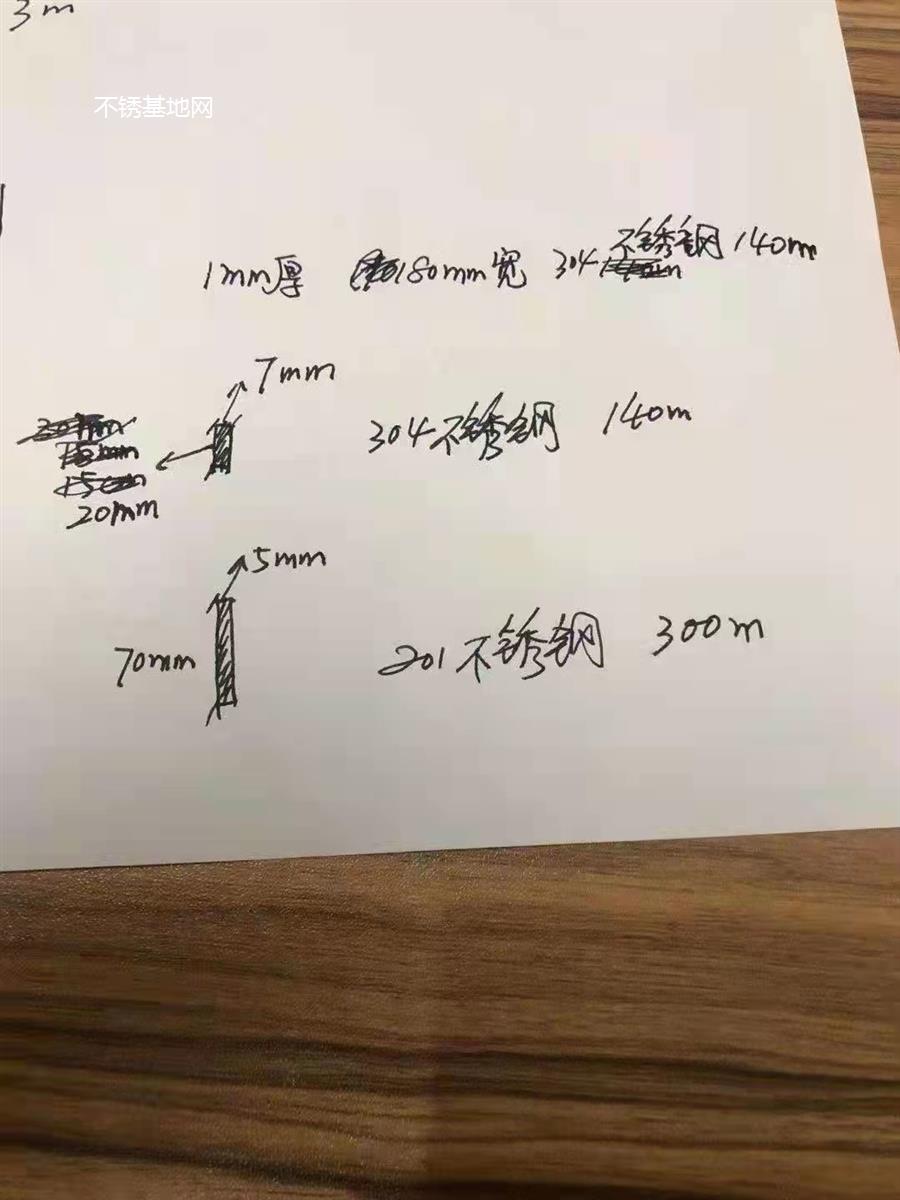 3m
不锈基地网
1mm厚 180mm宽 304 不锈钢 140m
7mm
304不锈钢 140m
20mm
5mm
70mm
201不锈钢 300m